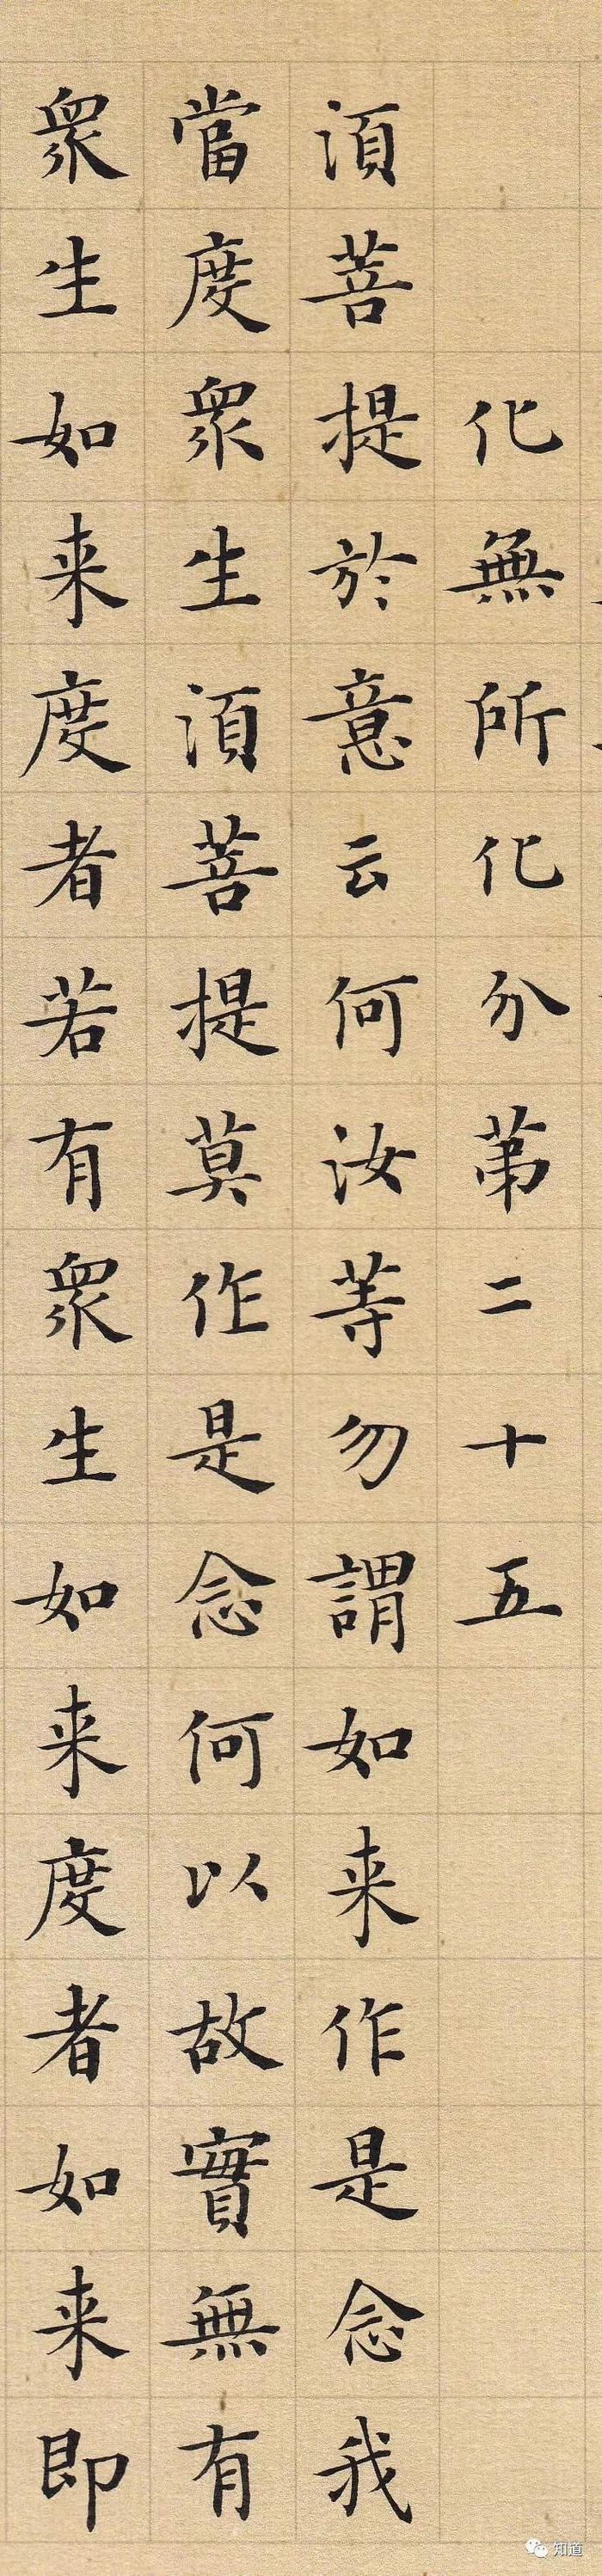 化無所化分苐二十五
湏菩提於意云何汝等勿謂如来作是念我
當度衆生湏菩提莫作是念何以故實無有
衆生如来度者若有衆生如来度者如来即
知道